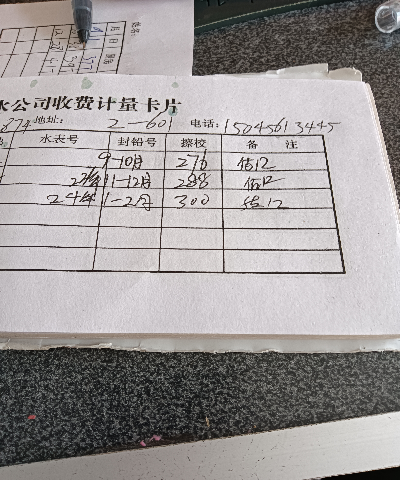 水公司收费计量卡片
874 地址: 2-601 电话: 15045613445
水表号 封铅号 擦校 备注
9-10月 276 估12
23年 11-12月 288 估12
24年 1-2月 300 估12